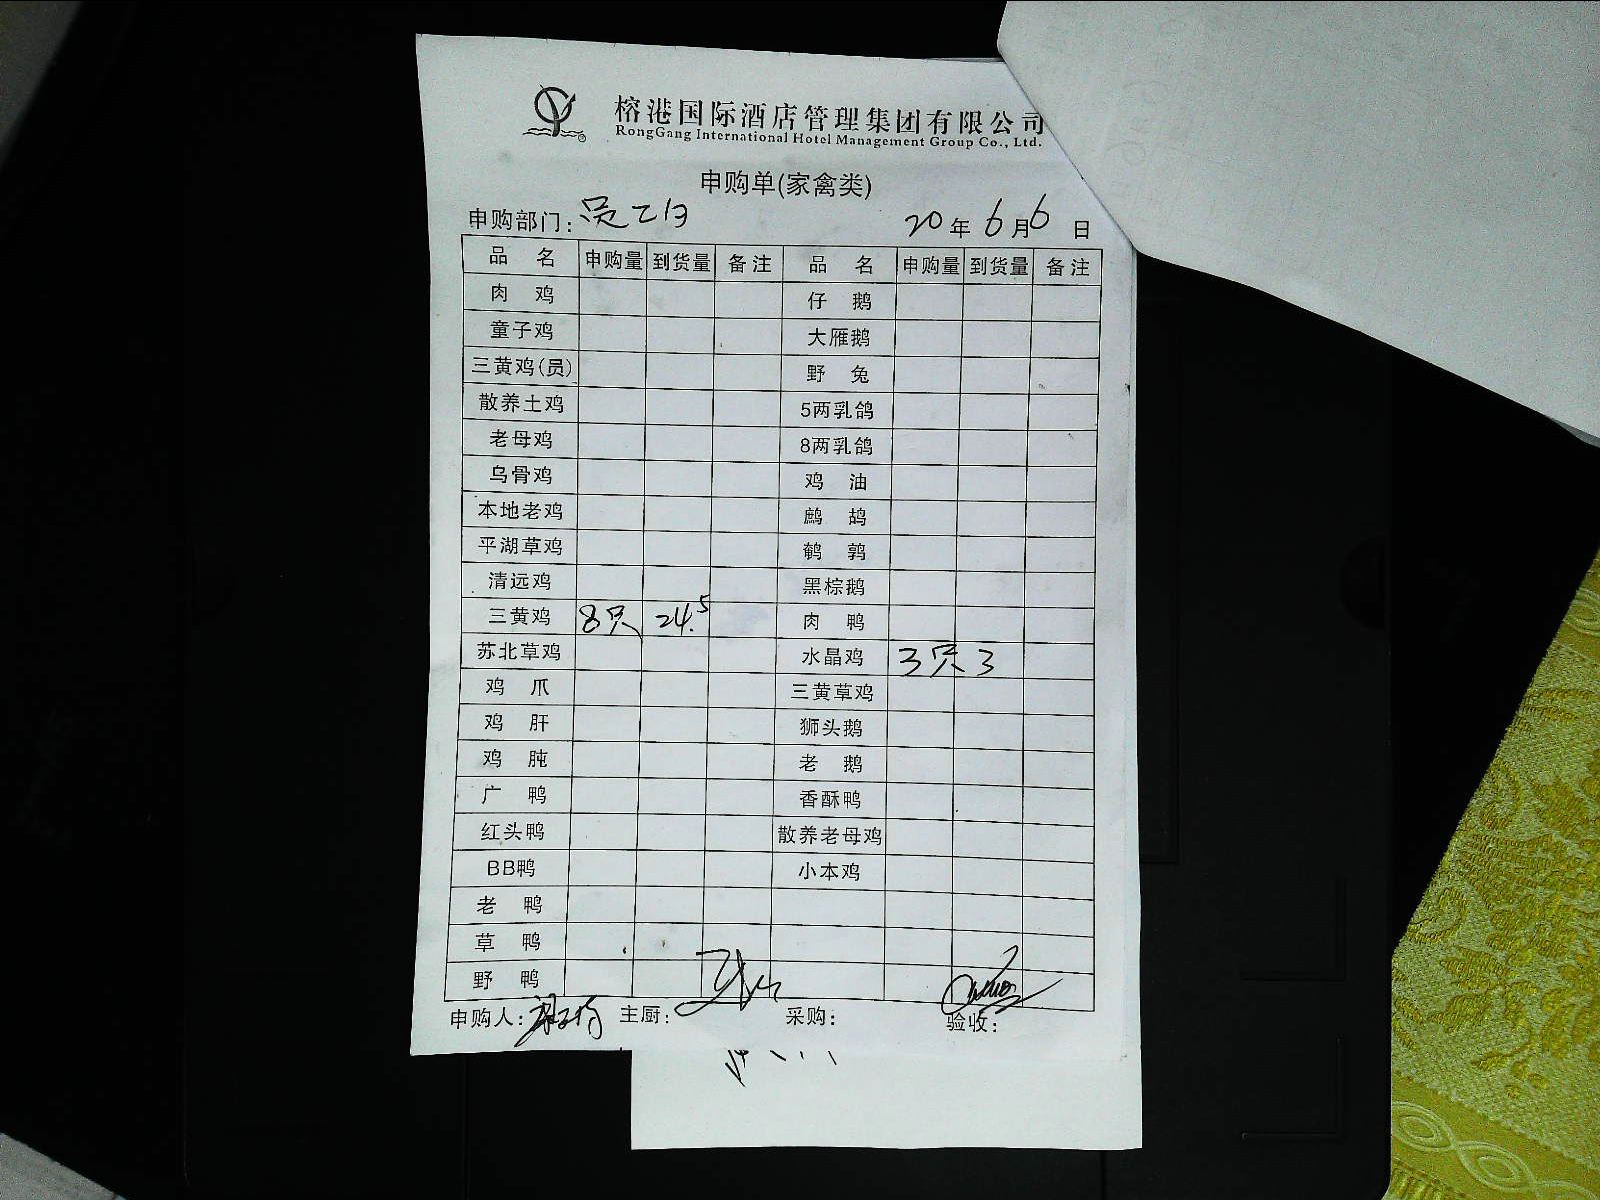 榕港国际酒店管理集团有限公司
RongGang International Hotel Management Group Co., Ltd.
申购单(家禽类)
申购部门: 20年6月6日
品名 申购量 到货量 备注 品名 申购量 到货量 备注
肉鸡 仔鹅
童子鸡 大雁鹅
三黄鸡(员) 野兔
散养土鸡 5两乳鸽
老母鸡 8两乳鸽
乌骨鸡 鸡油
本地老鸡 鹧鸪
平湖草鸡 鹌鹑
清远鸡 黑棕鹅
三黄鸡 8只 24.5 肉鸭
苏北草鸡 水晶鸡 3只 3
鸡爪 三黄草鸡
鸡肝 狮头鹅
鸡肫 老鹅
广鸭 香酥鸭
红头鸭 散养老母鸡
BB鸭 小本鸡
老鸭
草鸭
野鸭
申购人: 主厨: 采购: 验收: